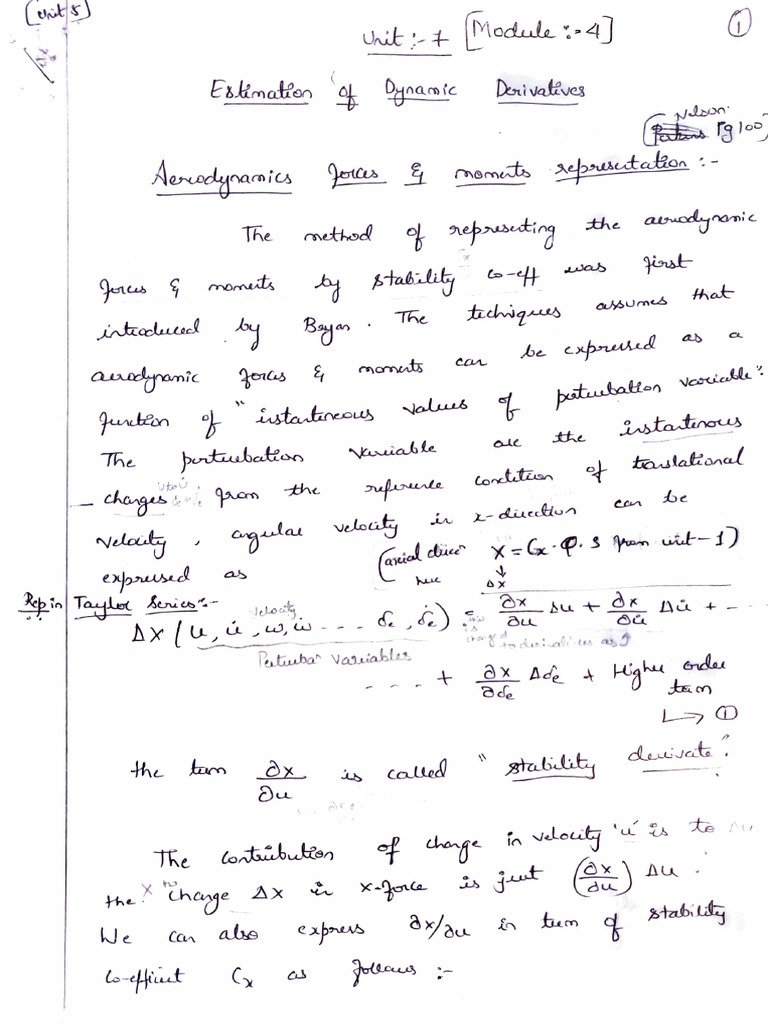 (Unit 5)
①
Unit :- 7 [Module :- 4]
Estimation of Dynamic Derivatives
(Nelson. Pg 100)
Aerodynamics forces & moments representation :-
The method of representing the aerodynamic
forces & moments by stability co-eff was first
introduced by Bryan. The techniques assumes that
aerodynamic forces & moments can be expressed as a
function of "instantineous values of perturbation variable".
The perturbation variable are the instantineous
changes from the reference condition of translational
velocity, angular velocity in x-direction can be
expressed as (axial direc X = Cx.Q.S from unit-1)
ΔX
Rep in Taylor Series:-
velocity
ΔX (u, u̇, w, ẇ ... δe, δ̇e) = ∂X/∂u Δu + ∂X/∂u̇ Δu̇ + - - -
Perturbar variables
- - - - + ∂X/∂δe Δδe + Higher order
term
↳ ①
the tam ∂X/∂u is called "stability derivate".
The contribution of change in velocity 'u' is to Δu
the change ΔX in x-force is just (∂X/∂u) Δu.
We can also express ∂x/∂u in tum of stability
co-effient Cx as follows :-